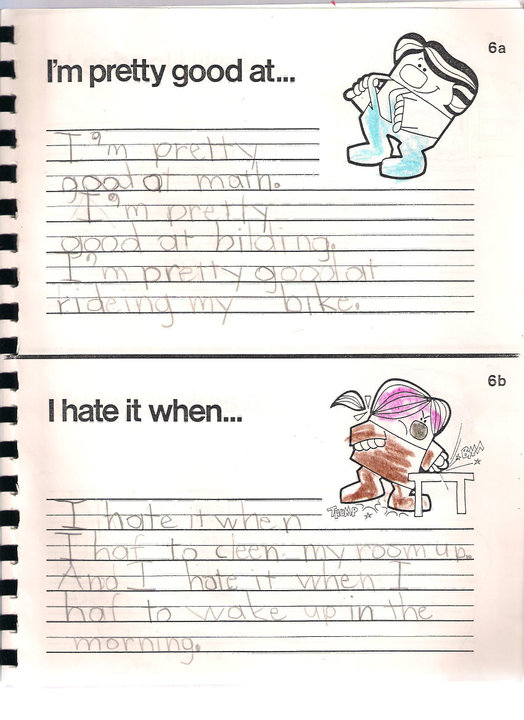 6a
I'm pretty good at...
I'm pretty
good at math.
I'm pretty
good at bilding.
I'm pretty good at
rideing my bike.
6b
I hate it when...
BAM
THUMP
I hate it when
I haf to cleen my room up.
And I hate it when I
haf to wake up in the
morning.